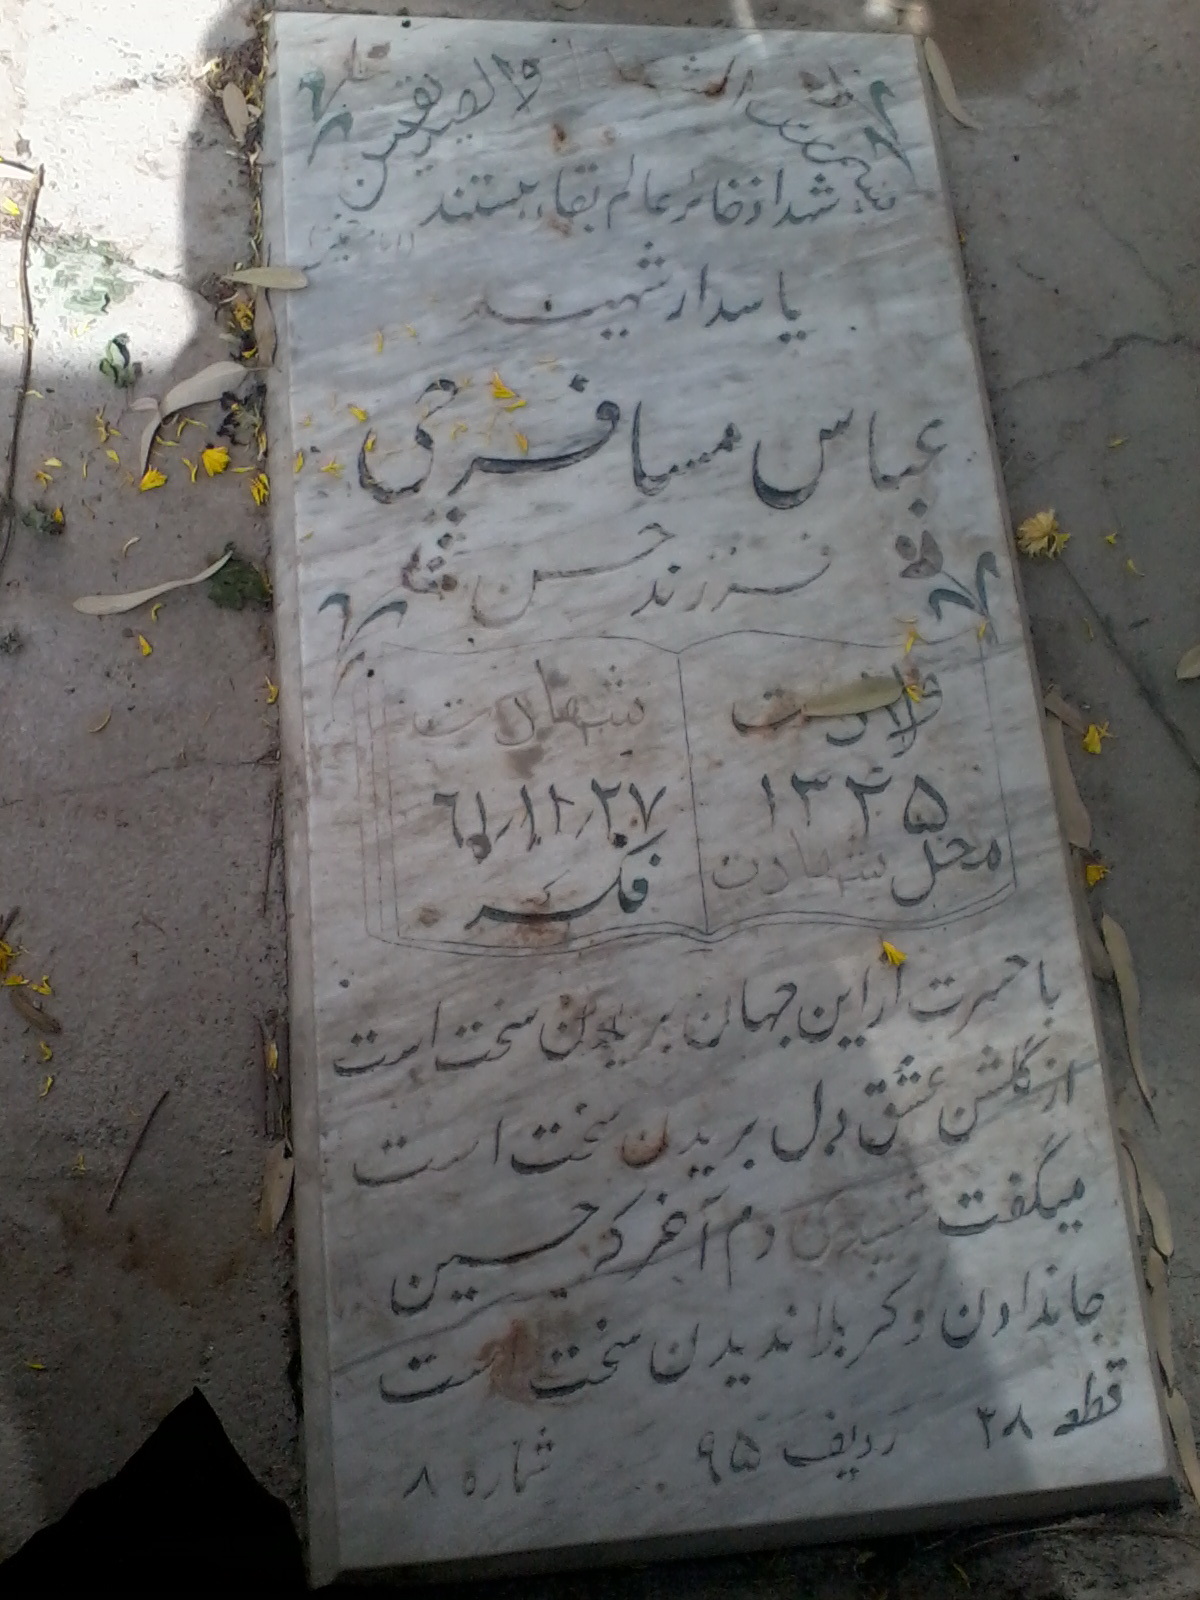 بسم رب الشهداء والصدیقین
شهدا ذخائر عالم بقاء هستند
امام خمینی
پاسدار شهید
عباس مسافرچی
فرزند حسن
ولادت
۱۳۴۵
شهادت
۶۱٫۱۱٫۲۷
محل شهادت
فکه
با حسرت از این جهان بریدن سخت است
از گلشن عشق دل بریدن سخت است
میگفت شهیدی دم آخر که حسین
جاندادن و کربلا ندیدن سخت است
قطعه ۲۸ ردیف ۹۵ شماره ۸